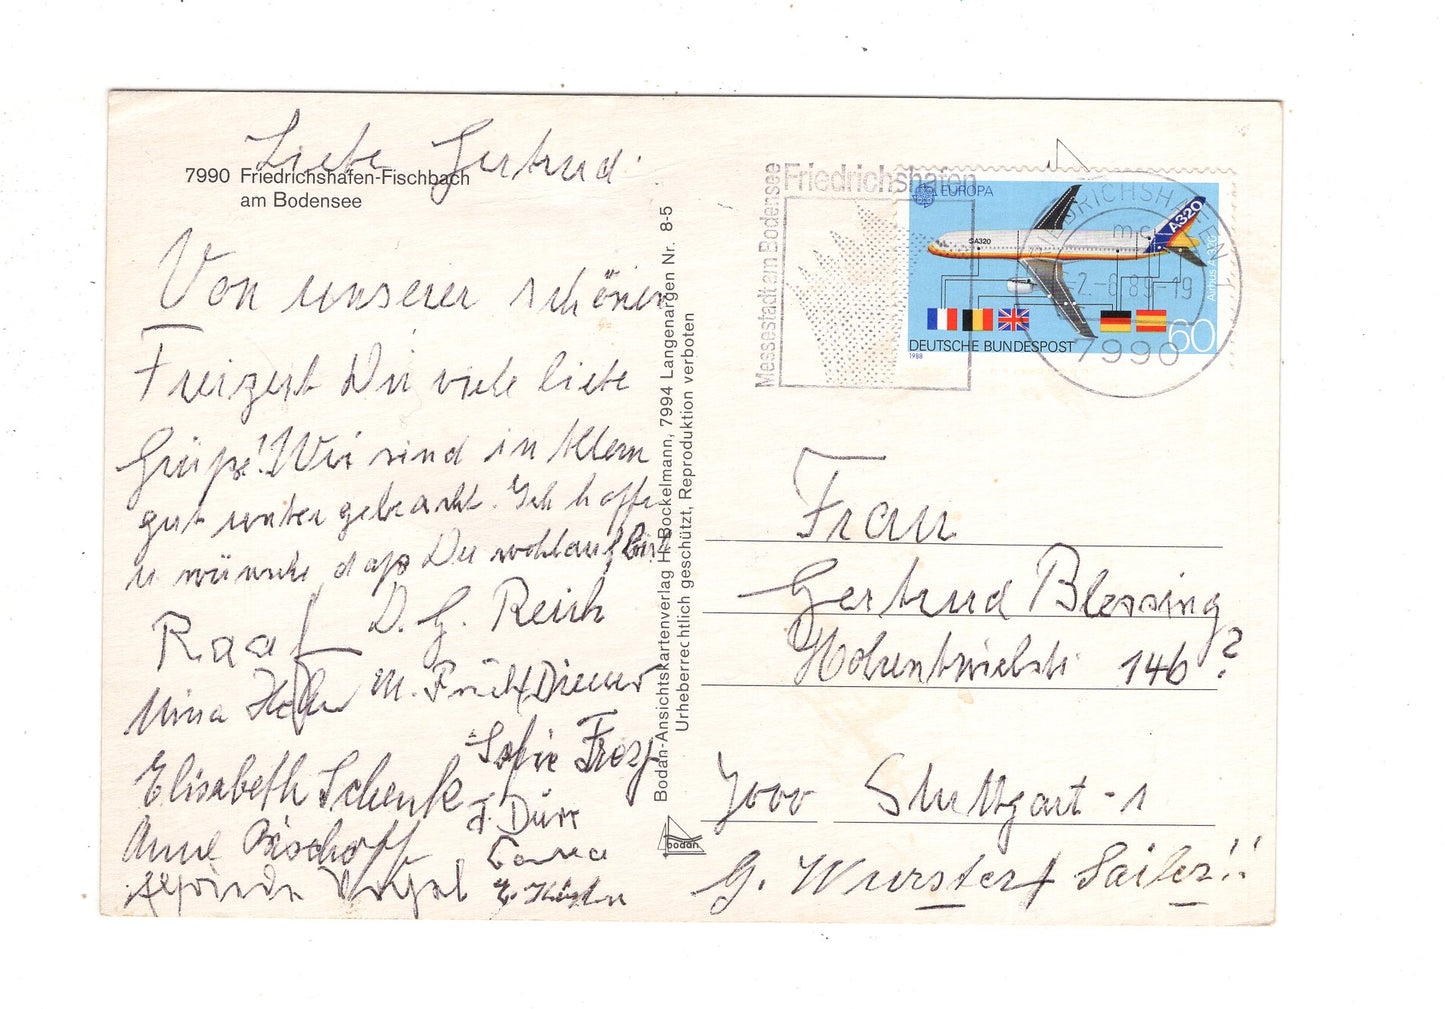 Liebe Gertrud!
7990 Friedrichshafen-Fischbach
am Bodensee
Von unserer schönen
Freizeit Dir viele liebe
Grüße! Wir sind in Allem
gut untergebracht. Ich hoffe
u wünsche daß Du wohlauf bist
D. G. Reich
Raaf
M.
Elisabeth Schenk
Sofie
Anne Bischoff
J. Dürr
Vogel
Bodan-Ansichtskartenverlag H. Bockelmann, 7994 Langenargen Nr. 8-5
Urheberrechtlich geschützt, Reproduktion verboten
bodan
Messestadt am Bodensee
Friedrichshafen
EUROPA
SA320
A320
Airbus A 320
DEUTSCHE BUNDESPOST
60
1988
FRIEDRICHSHAFEN 1
mc
-2.-8.89-19
7990
Frau
Gertrud Blessing
Hohentwielstr 146?
7000 Stuttgart-1
G. Wurster